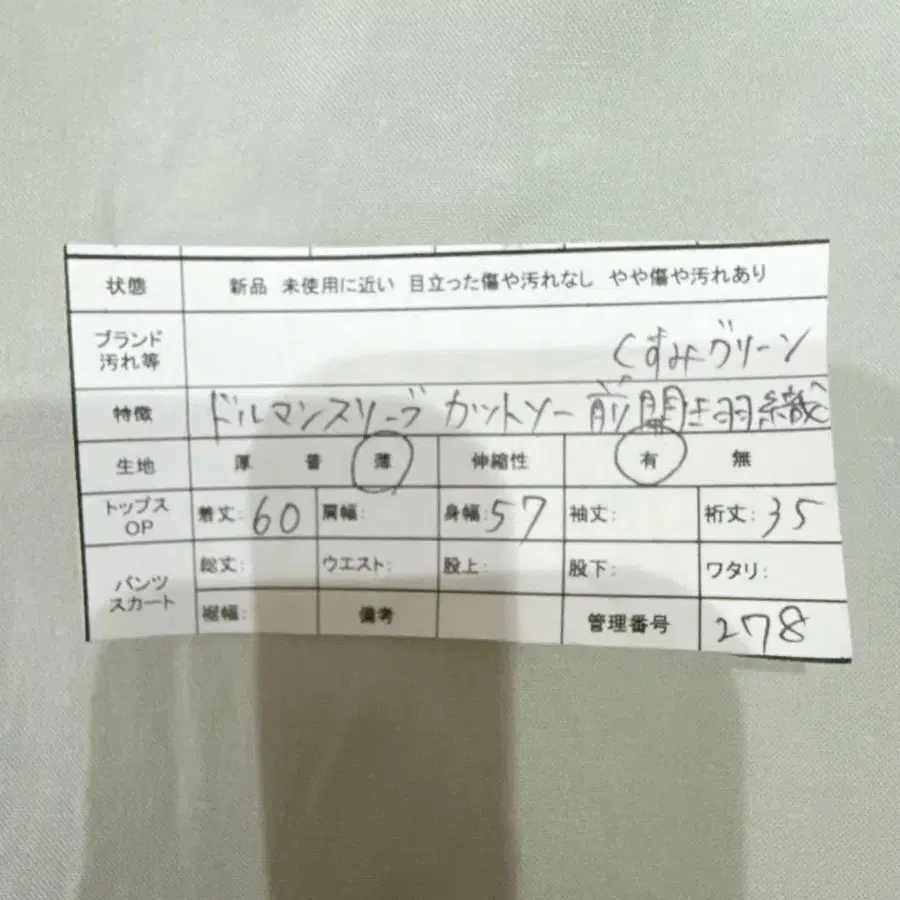 状態 新品 未使用に近い 目立った傷や汚れなし やや傷や汚れあり
ブランド 汚れ等 くすみグリーン
特徴 ドルマンスリーブ カットソー 前開き羽織
生地 厚 普 薄 伸縮性 有 無
トップス OP 着丈: 60 肩幅: 身幅: 57 袖丈: 裄丈: 35
パンツ スカート 総丈: ウエスト: 股上: 股下: ワタリ:
裾幅: 備考 管理番号 278